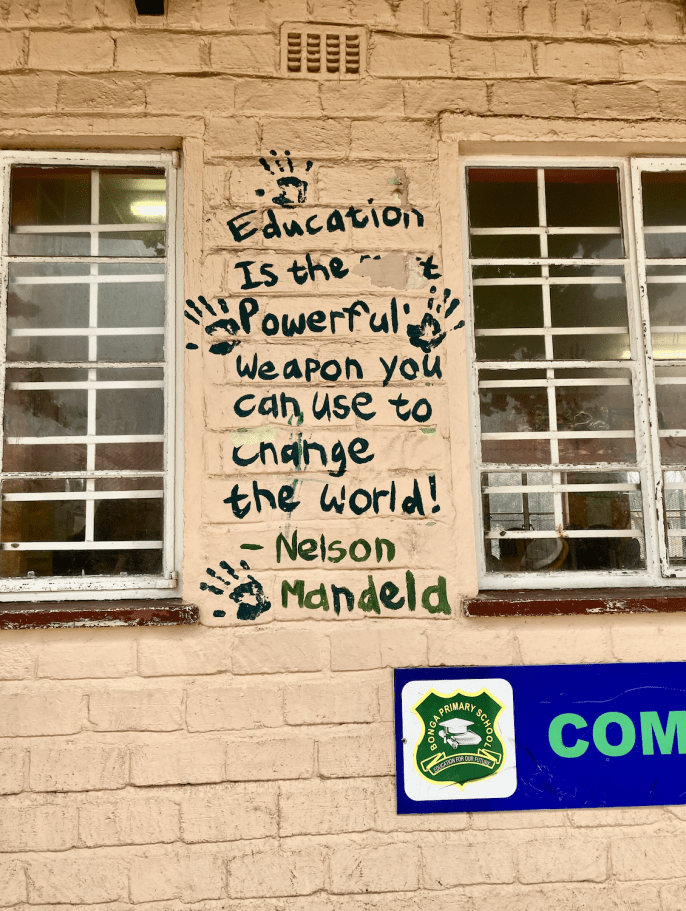 Education
Is the
Powerful
weapon you
can use to
change
the world!
- Nelson
Mandela
BONGA PRIMARY SCHOOL
EDUCATION FOR OUR FUTURE
COM